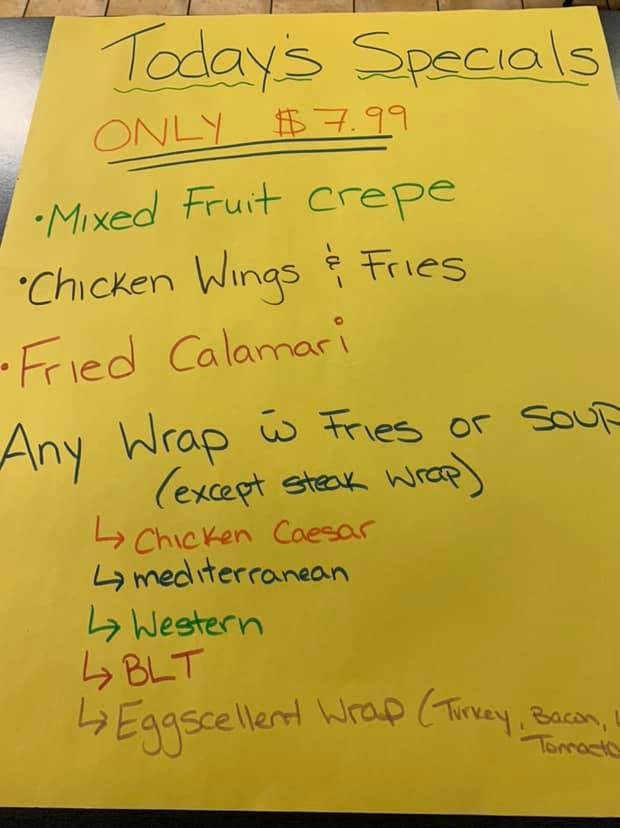 Today's Specials
ONLY $7.99
• Mixed Fruit Crepe
• Chicken Wings & Fries
• Fried Calamari
Any Wrap w̄ Fries or Soup
(except steak wrap)
↳ Chicken Caesar
↳ mediterranean
↳ Western
↳ BLT
↳ Eggscellent Wrap (Turkey, Bacon,